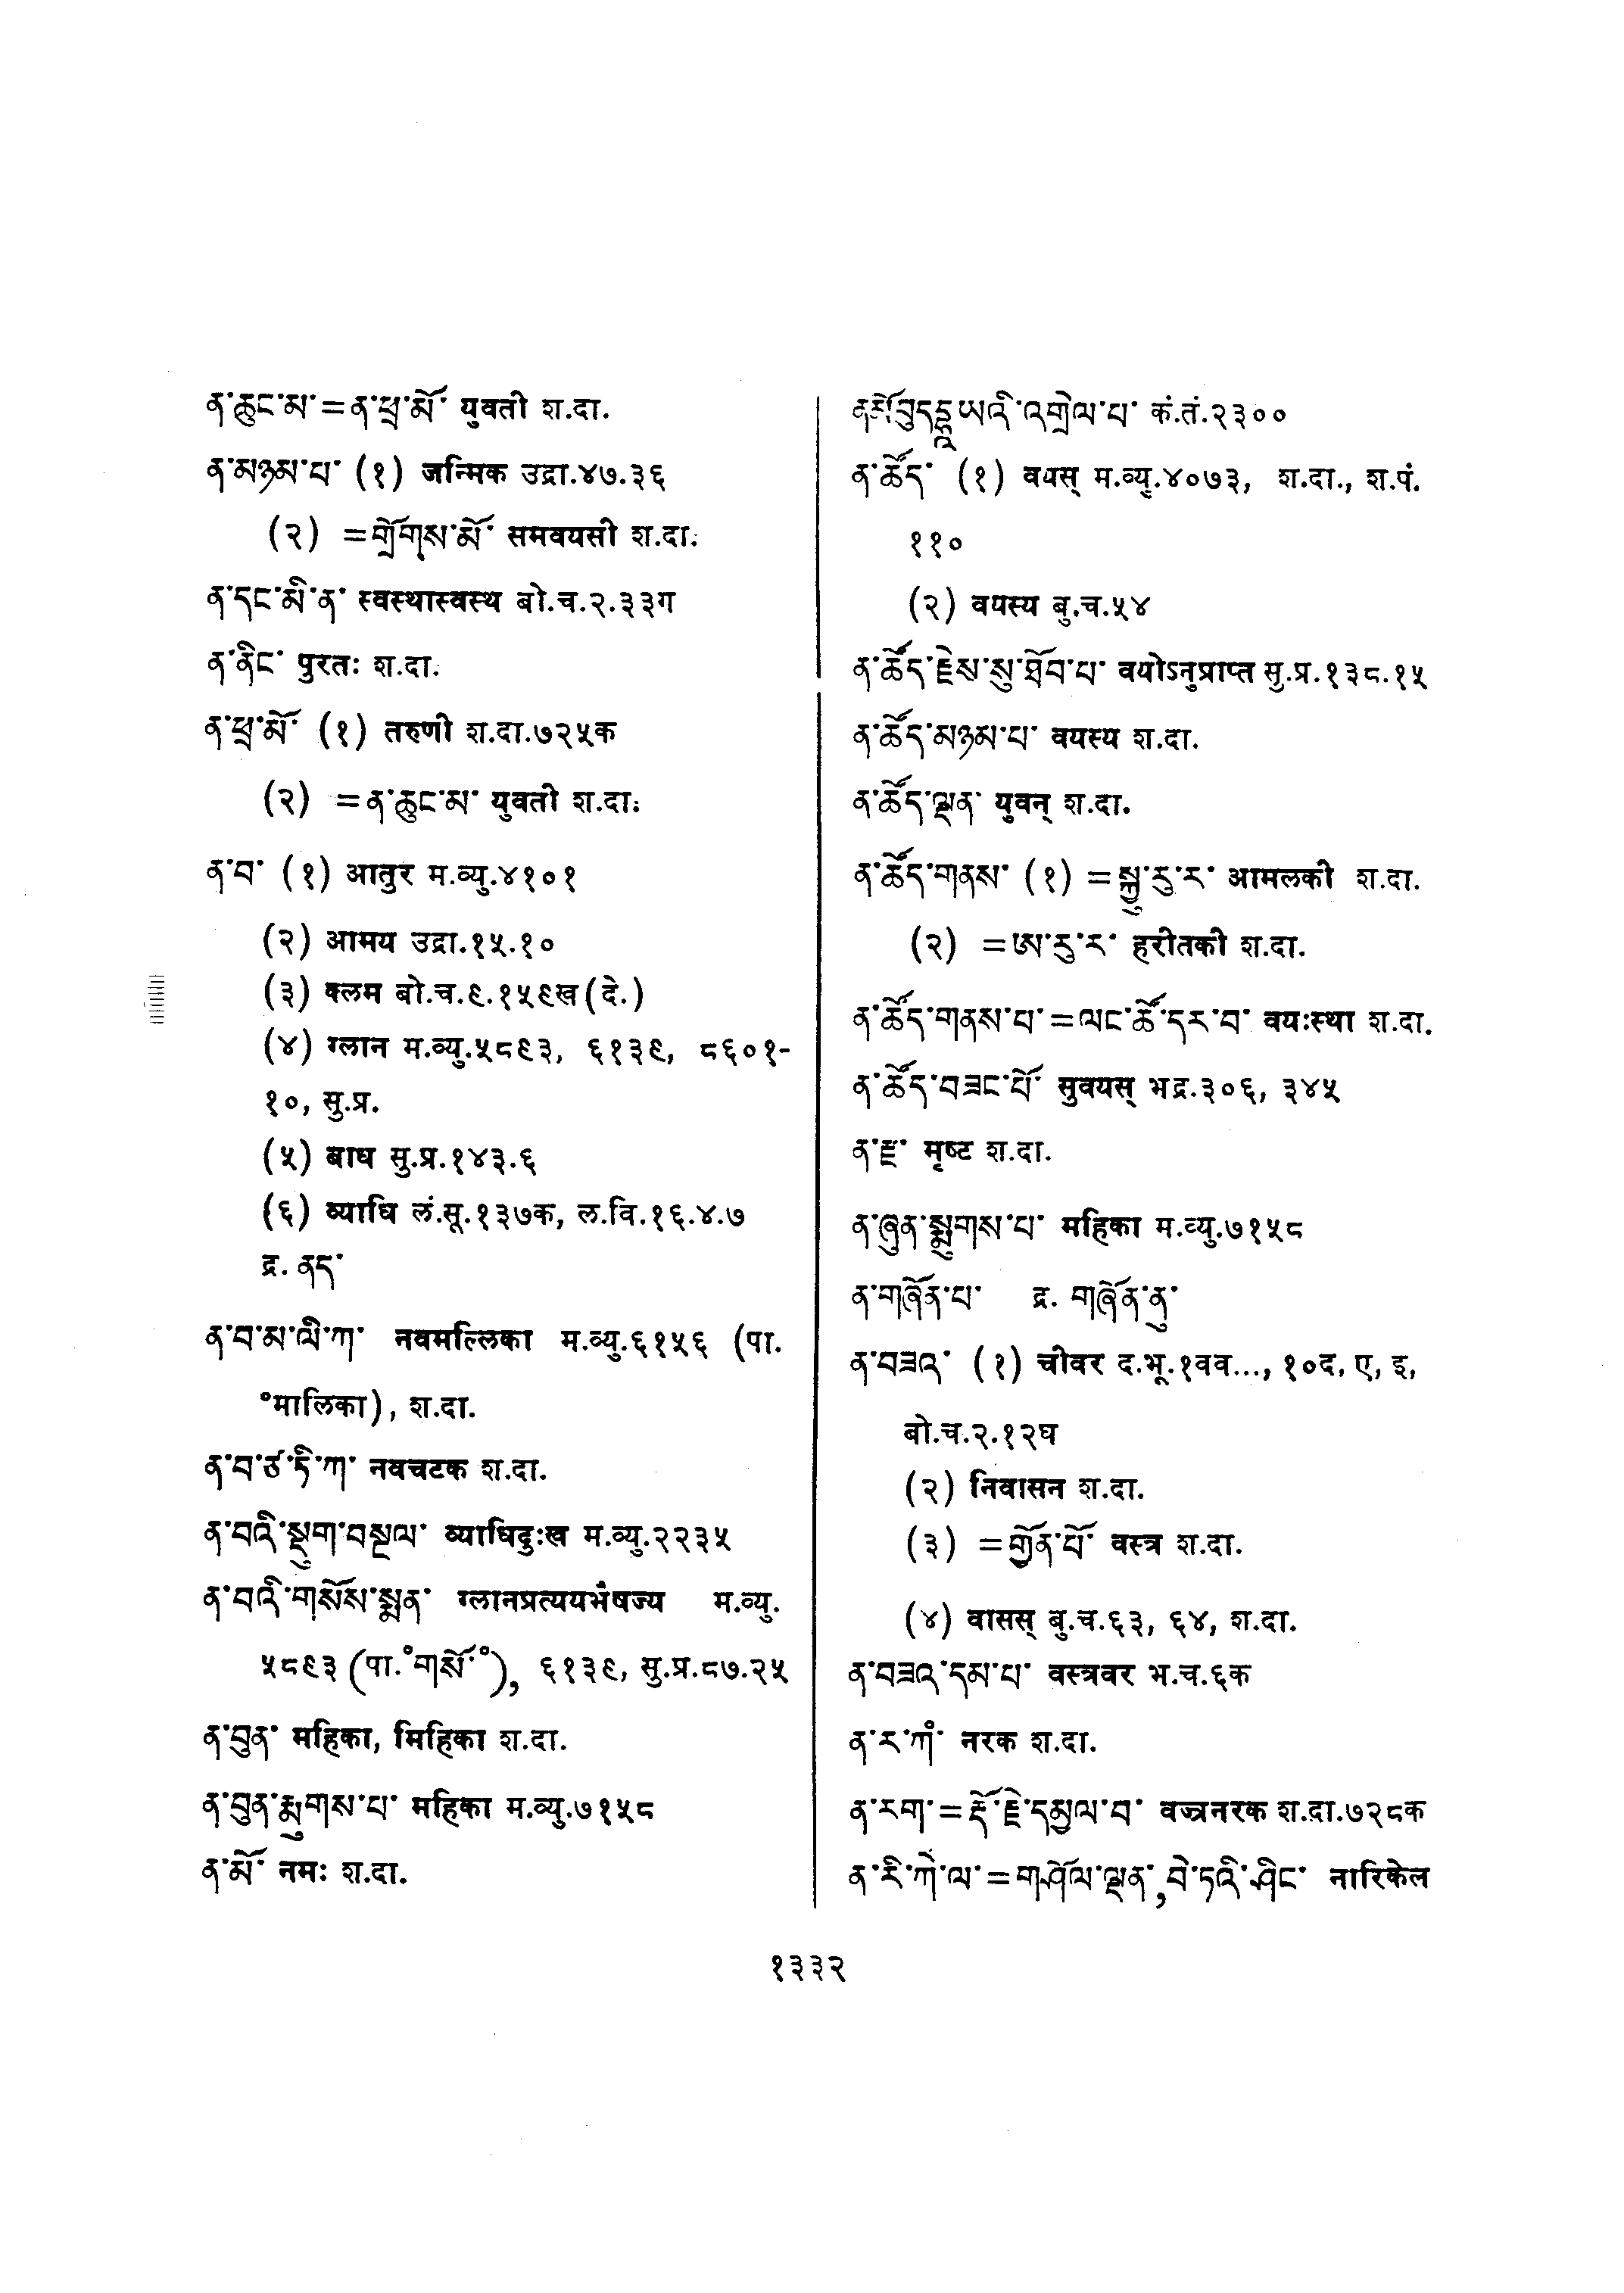 ན་ཆུང་མ་=ན་ཕྲ་མོ་ युवती श.दा.
ན་མཉམ་པ་ (१) जन्मिक उद्रा.४७.३६
(२) =གྲོགས་མོ་ समवयसी श.दा.
ན་དང་མི་ན་ स्वस्थास्वस्थ बो.च.२.३३ग
ན་ནིང་ पुरतः श.दा.
ན་ཕྲ་མོ་ (१) तरुणी श.दा.७२५क
(२) =ན་ཆུང་མ་ युवती श.दा.
ན་བ་ (१) आतुर म.व्यु.४१०१
(२) आमय उद्रा.१५.१०
(३) क्लम बो.च.९.१५९ख(दे.)
(४) ग्लान म.व्यु.५८९३, ६१३९, ८६०१-
१०, सु.प्र.
(५) बाध सु.प्र.१४३.६
(६) व्याधि लं.सू.१३७क, ल.वि.१६.४.७
द्र. ནད་
ན་བ་མ་ལི་ཀ་ नवमल्लिका म.व्यु.६१५६ (पा.
°मालिका), श.दा.
ན་བ་ཙ་ཏི་ཀ་ नवचटक श.दा.
ན་བའི་སྡུག་བསྔལ་ व्याधिदुःख म.व्यु.२२३५
ན་བའི་གསོས་སྨན་ ग्लानप्रत्ययभैषज्य म.व्यु.
५८९३ (पा.°གསོ་°), ६१३९, सु.प्र.८७.२५
ན་བུན་ महिका, मिहिका श.दा.
ན་བུན་རྨུགས་པ་ महिका म.व्यु.७१५८
ན་མོ་ नमः श.दा.
कं.तं.२३००
ན་ཚོད་ (१) वयस् म.व्यु.४०७३, श.दा., श.पं.
११०
(२) वयस्य बु.च.५४
ན་ཚོད་རྗེས་སུ་ཐོབ་པ་ वयोऽनुप्राप्त सु.प्र.१३८.१५
ན་ཚོད་མཉམ་པ་ वयस्य श.दा.
ན་ཚོད་ལྡན་ युवन् श.दा.
ན་ཚོད་གནས་ (१) =སྐྱུ་རུ་ར་ आमलकी श.दा.
(२) =ཨ་རུ་ར་ हरीतकी श.दा.
ན་ཚོད་གནས་པ་=ལང་ཚོ་དར་བ་ वयःस्था श.दा.
ན་ཚོད་བཟང་པོ་ सुवयस् भद्र.३०६, ३४५
ན་རྫ་ मृष्ट श.दा.
ན་ཞུན་སྨུགས་པ་ महिका म.व्यु.७१५८
ན་གཞོན་པ་ द्र. གཞོན་ནུ་
ན་བཟའ་ (१) चीवर द.भू.१वव..., १०द, ए, इ,
बो.च.२.१२घ
(२) निवासन श.दा.
(३) =གྱོན་པོ་ वस्त्र श.दा.
(४) वासस् बु.च.६३, ६४, श.दा.
ན་བཟའ་དམ་པ་ वस्त्रवर भ.च.६क
ན་ར་ཀཾ་ नरक श.दा.
ན་རག་=རྡོ་རྗེ་དམྱལ་བ་ वज्रनरक श.दा.७२८क
ན་རི་ཀེ་ལ་=གཤོལ་ལྡན་,བེ་ཏའི་ཤིང་ नारिकेल
१३३२